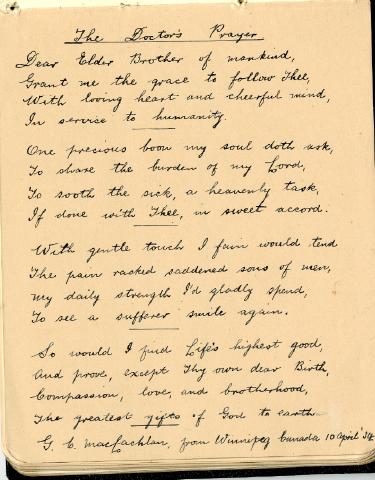 The Doctor's Prayer
Dear Elder Brother of mankind,
Grant me the grace to follow Thee,
With loving heart and cheerful mind,
In service to humanity.
One precious boon my soul doth ask,
To share the burden of my Lord,
To sooth the sick, a heavenly task,
If done with Thee, in sweet accord.
With gentle touch I fain would tend
The pain racked saddened sons of men,
My daily strength I'd gladly spend,
To see a sufferer smile again.
So would I find Life's highest good,
And prove, except Thy own dear Birth,
Compassion, love, and brotherhood,
The greatest gifts of God to earth
G. C. MacLachlan, from Winnipeg Canada 10 April '34